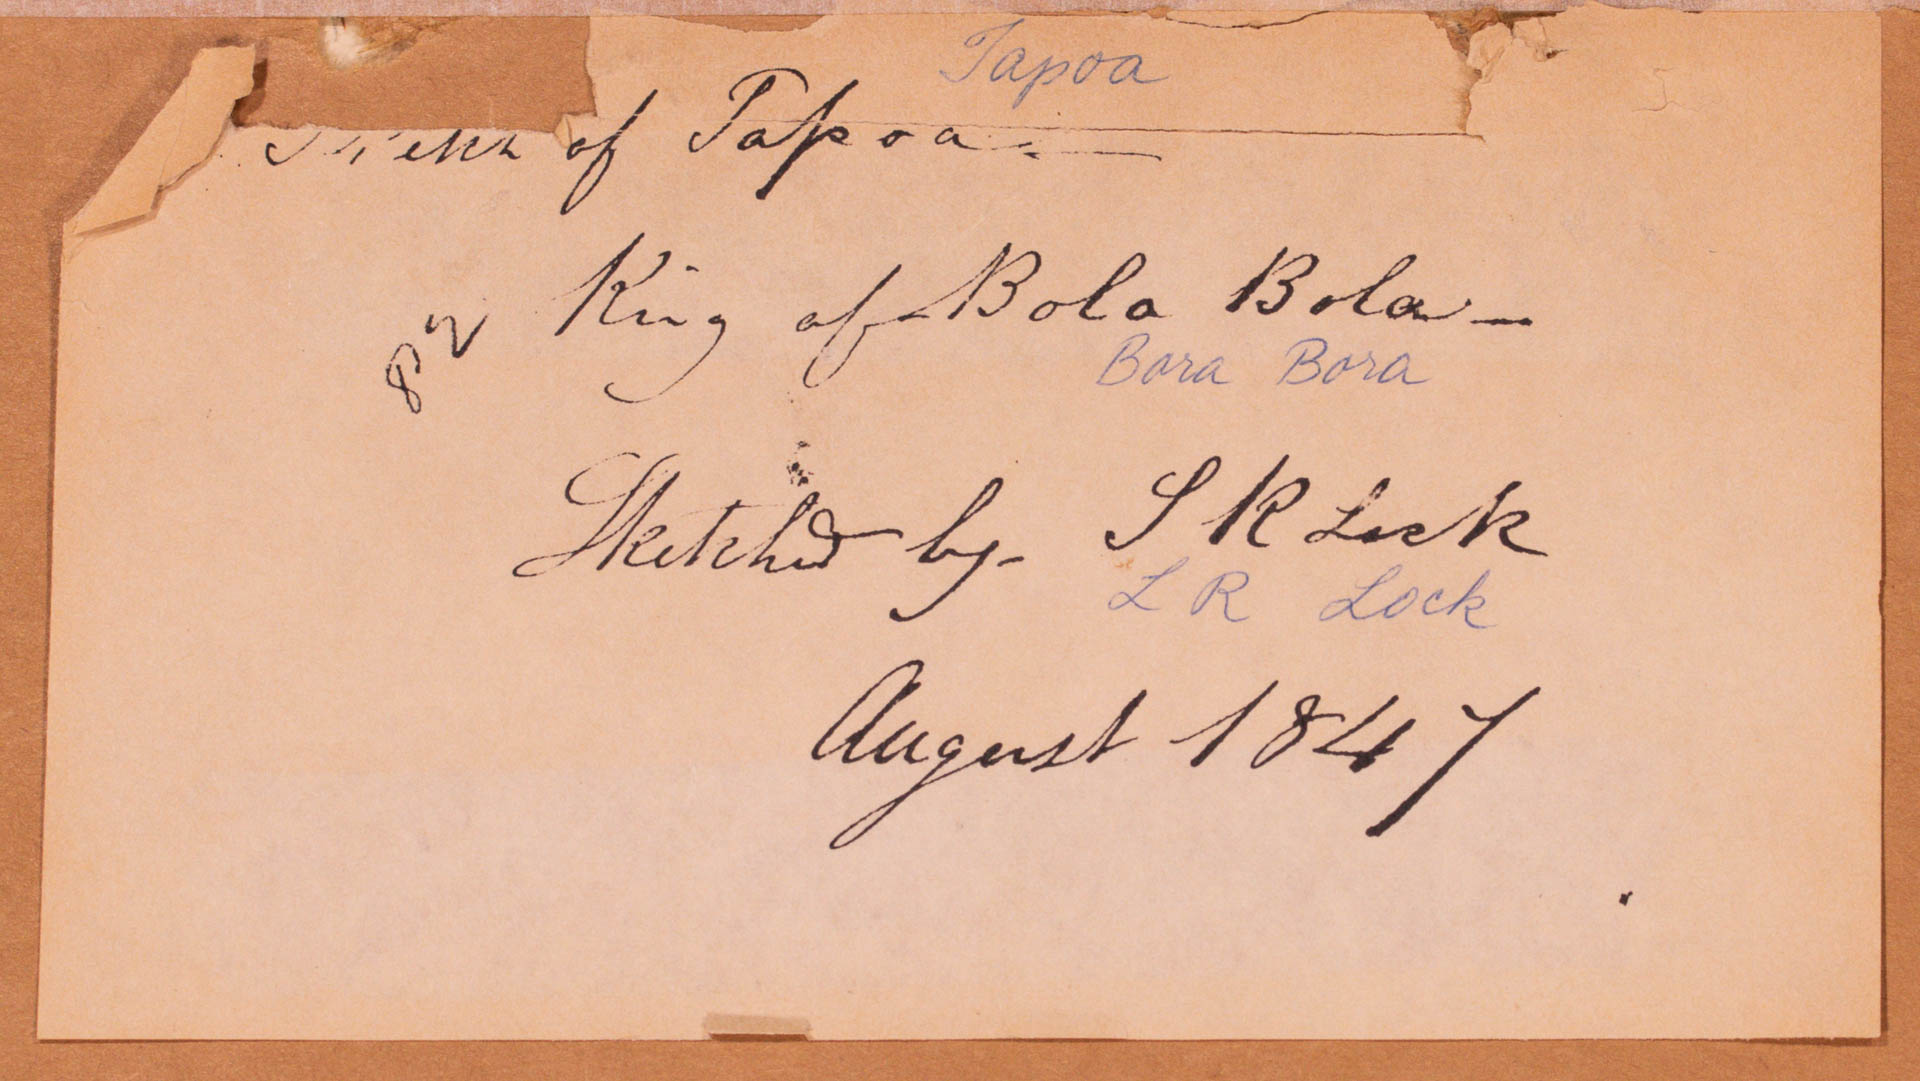 Tapoa
of Tapoa —
King of Bola Bola —
Bora Bora
Sketched by S R Lock
L R Lock
August 1847